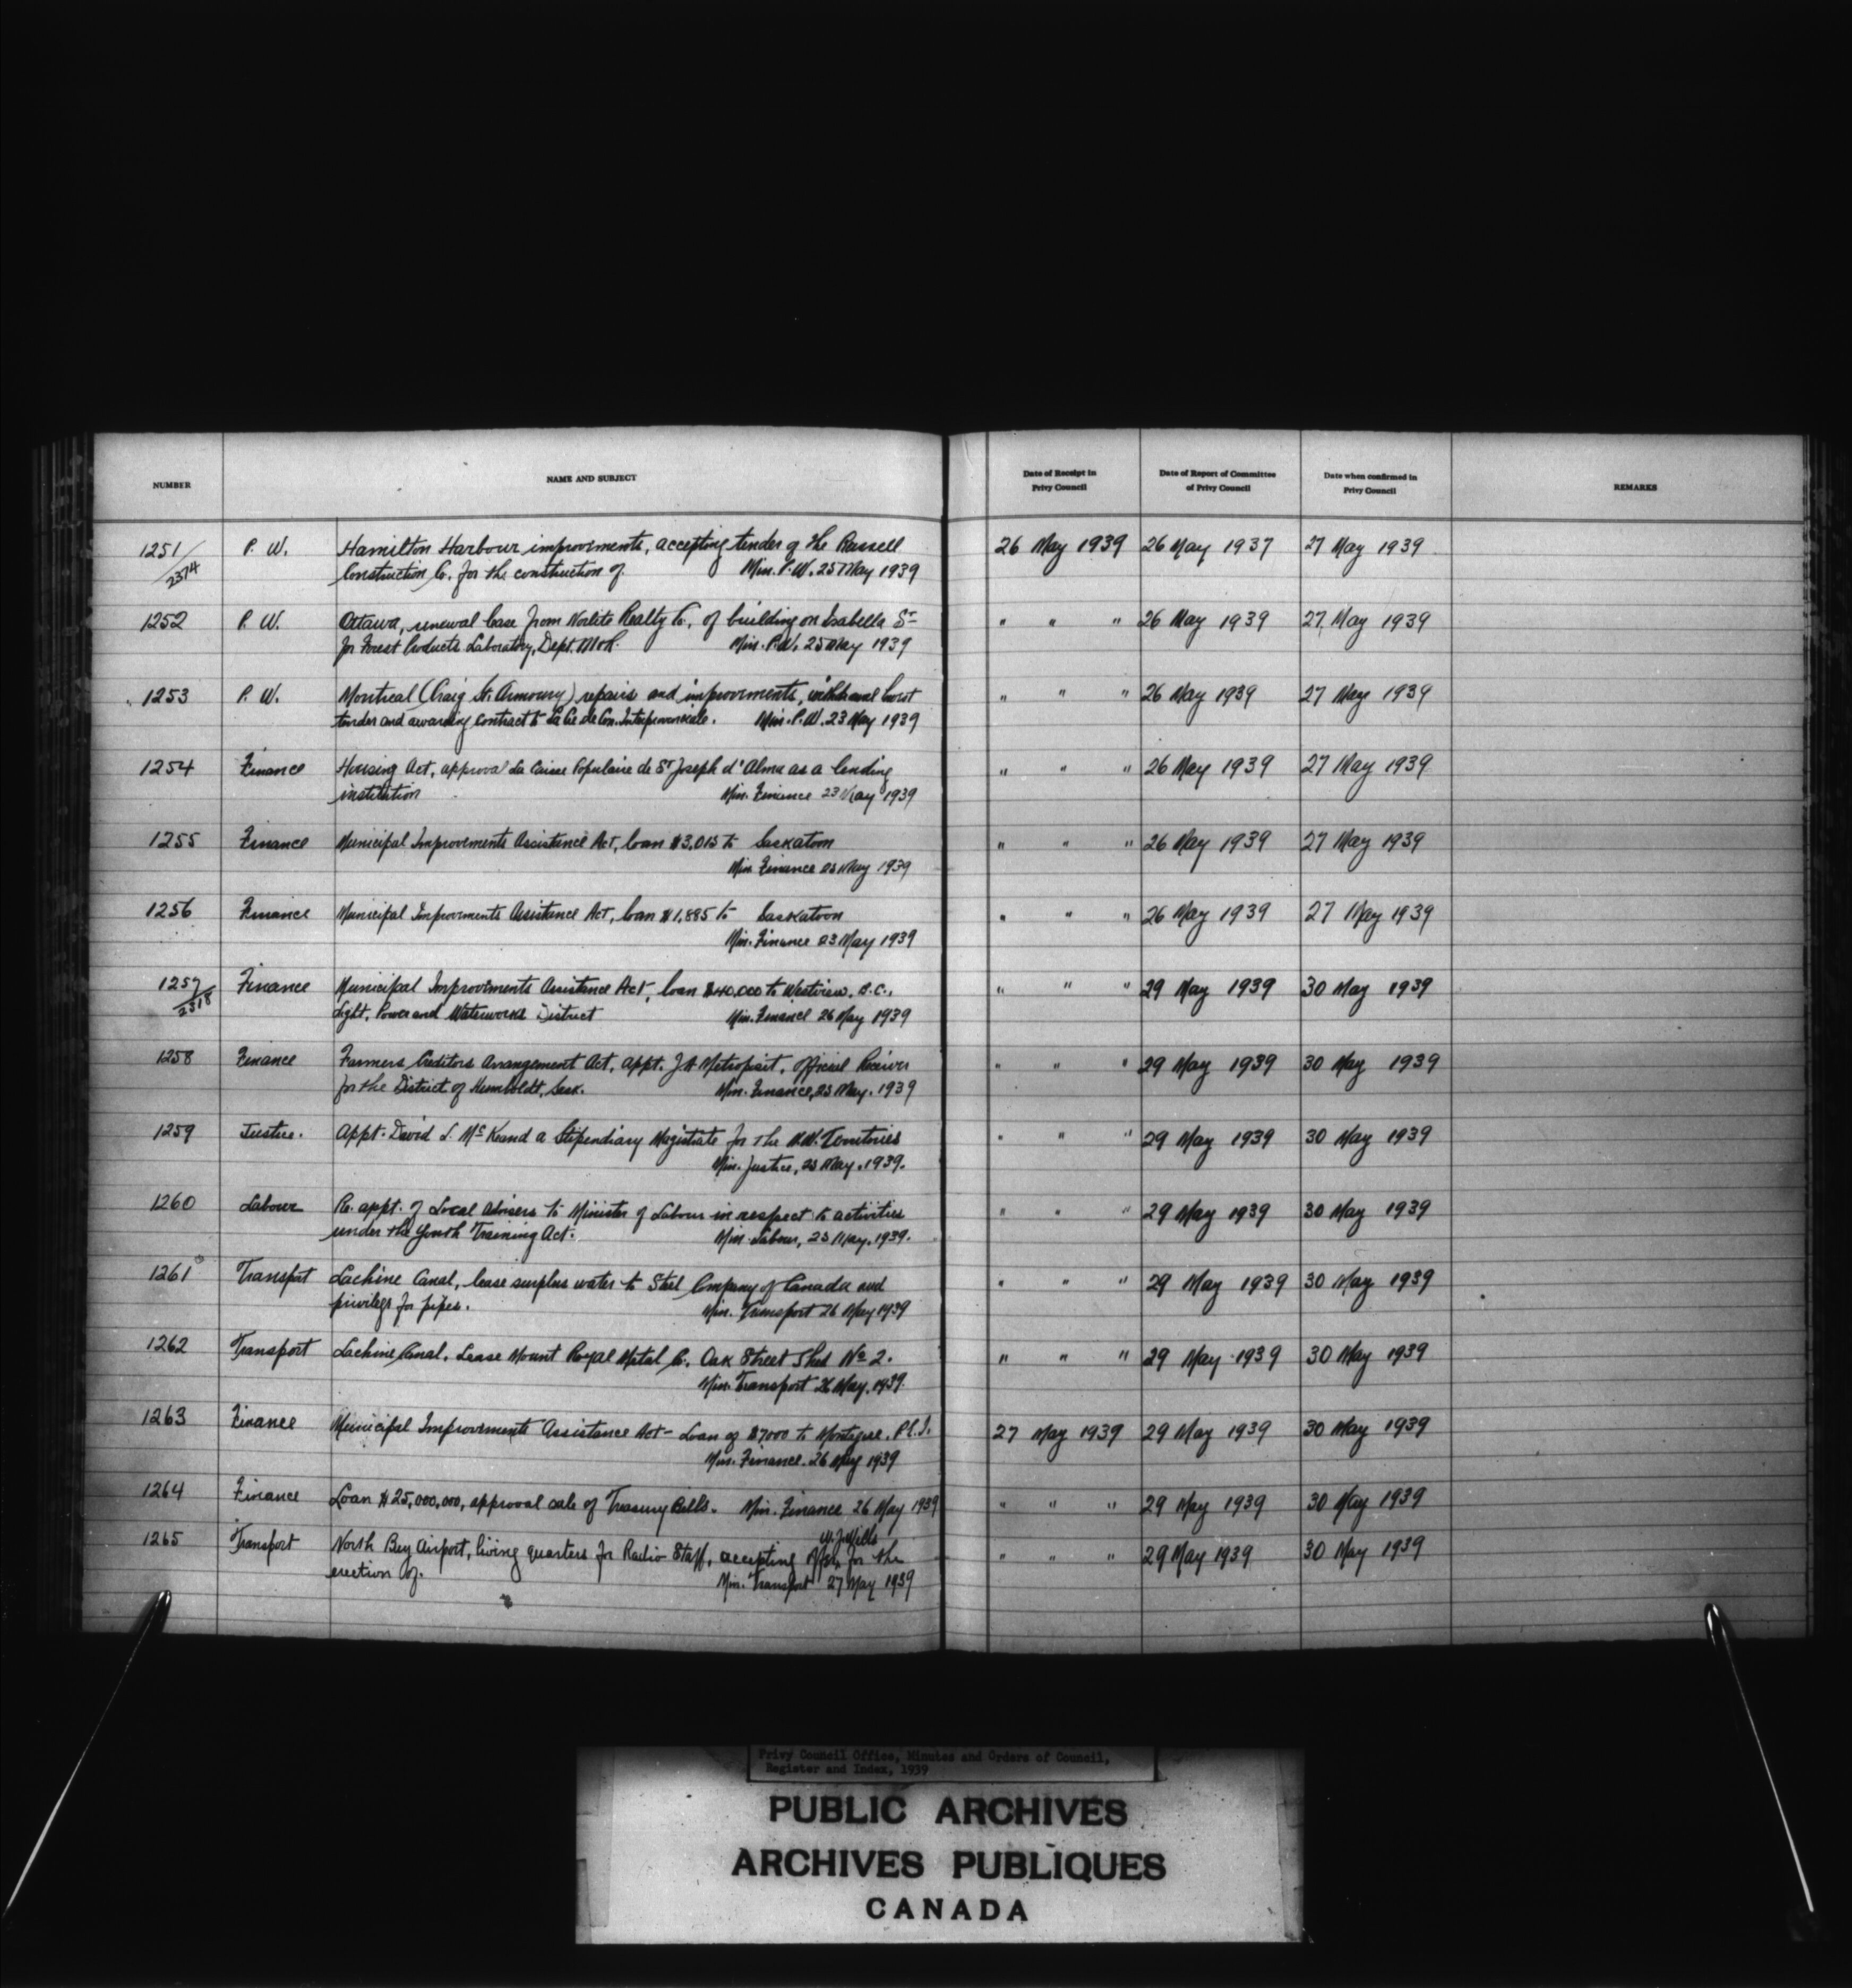 NUMBER NAME AND SUBJECT Date of Receipt in Privy Council Date of Report of Committee of Privy Council Date when confirmed in Privy Council REMARKS
1251/2374 P. W. Hamilton Harbour improvements, accepting tender of the Russell 26 May 1939 26 May 1937 27 May 1939
Construction Co. for the construction of. Min. P.W. 25 May 1939
1252 P. W. Ottawa, renewal lease from Norlite Realty Co, of building on Isabella St " " " 26 May 1939 27 May 1939
for Forest Products Laboratory, Dept. M & R. Min. P.W. 25 May 1939
1253 P. W. Montreal (Craig St. Armoury) repairs and improvements, withdrawal lowest " " " 26 May 1939 27 May 1939
tender and awarding contract to La Cie de Con. Interprovinciale. Min. P.W. 23 May 1939
1254 Finance Housing Act, approval La Caisse Populaire de St Joseph d'Alma as a lending " " " 26 May 1939 27 May 1939
institution Min. Finance 23 May 1939
1255 Finance Municipal Improvements Assistance Act, loan $3,015 to Saskatoon " " " 26 May 1939 27 May 1939
Min Finance 23 May 1939
1256 Finance Municipal Improvements Assistance Act, loan $1,885 to Saskatoon " " " 26 May 1939 27 May 1939
Min. Finance 23 May 1939
1257/2318 Finance Municipal Improvements Assistance Act, loan $40,000 to Westview, B.C., " " " 29 May 1939 30 May 1939
Light, Power and Waterworks District Min. Finance 26 May 1939
1258 Finance Farmers Creditors Arrangement Act, Appt. Official Receiver " " " 29 May 1939 30 May 1939
for the District of Humboldt, Sask. Min. Finance, 23 May. 1939
1259 Justice. Appt. David L. McKeand a Stipendiary Magistrate for the N.W. Territories " " " 29 May 1939 30 May 1939
Min. Justice, 23 May. 1939.
1260 Labour Re. appt. of Local Advisers to Minister of Labour in respect to activities " " " 29 May 1939 30 May 1939
under the Youth Training Act. Min. Labour, 23 May. 1939.
1261 Transport Lachine Canal, lease surplus water to Steel Company of Canada and " " " 29 May 1939 30 May 1939
privilege for pipes. Min. Transport 26 May 1939
1262 Transport Lachine Canal, Lease Mount Royal Metal Co. Oak Street Shed No 2. " " " 29 May 1939 30 May 1939
Min. Transport 26 May. 1939.
1263 Finance Municipal Improvements Assistance Act - Loan of $7000 to Montague, P.E.I. 27 May 1939 29 May 1939 30 May 1939
Min. Finance. 26 May 1939
1264 Finance Loan $25,000,000, approval sale of Treasury Bills. Min. Finance 26 May 1939 " " " 29 May 1939 30 May 1939
W. J. Wills
1265 Transport North Bay Airport, living quarters for Radio Staff, accepting offer, for the " " " 29 May 1939 30 May 1939
erection of. Min. Transport 27 May 1939
Privy Council Office, Minutes and Orders of Council,
Register and Index, 1939
PUBLIC ARCHIVES
ARCHIVES PUBLIQUES
CANADA